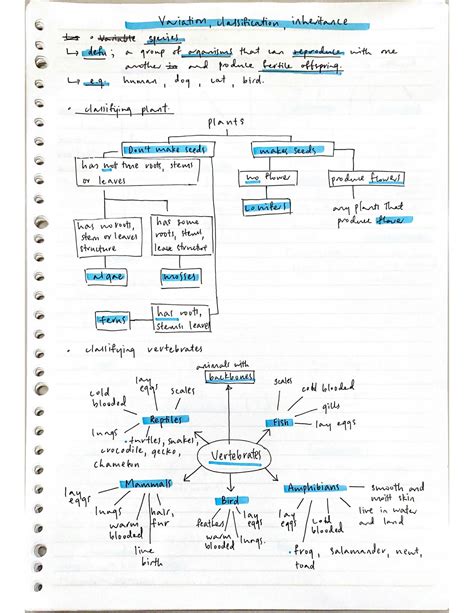 Variation, classification, inheritance
species
↳ defn; a group of organisms that can reproduce with one
another and produce fertile offspring.
↳ e.g. human, dog, cat, bird.
• classifying plant
plants
Don't make seeds
makes seeds
has not true roots, stems
or leaves
no flower
produce flowers
conifers
any plants that
produce flower
has no roots,
stem or leaves
structure
has some
roots, stems,
leave structure
algae
mosses
ferns
has roots,
stems leaves
• classifying vertebrates
animals with
backbones
lay
eggs
scales
cold
blooded
Reptiles
lungs
• turtles, snakes,
crocodile, gecko,
chameleon
scales
cold blooded
gills
lay eggs
Fish
Vertebrates
Mammals
lay
eggs
lungs
warm
blooded
live
birth
hair,
fur
Bird
feathers
warm
blooded
lay
eggs
lungs.
Amphibians
smooth and
moist skin
live in water
and land
lay
eggs
lungs
cold
blooded
• frog, salamander, newt,
toad